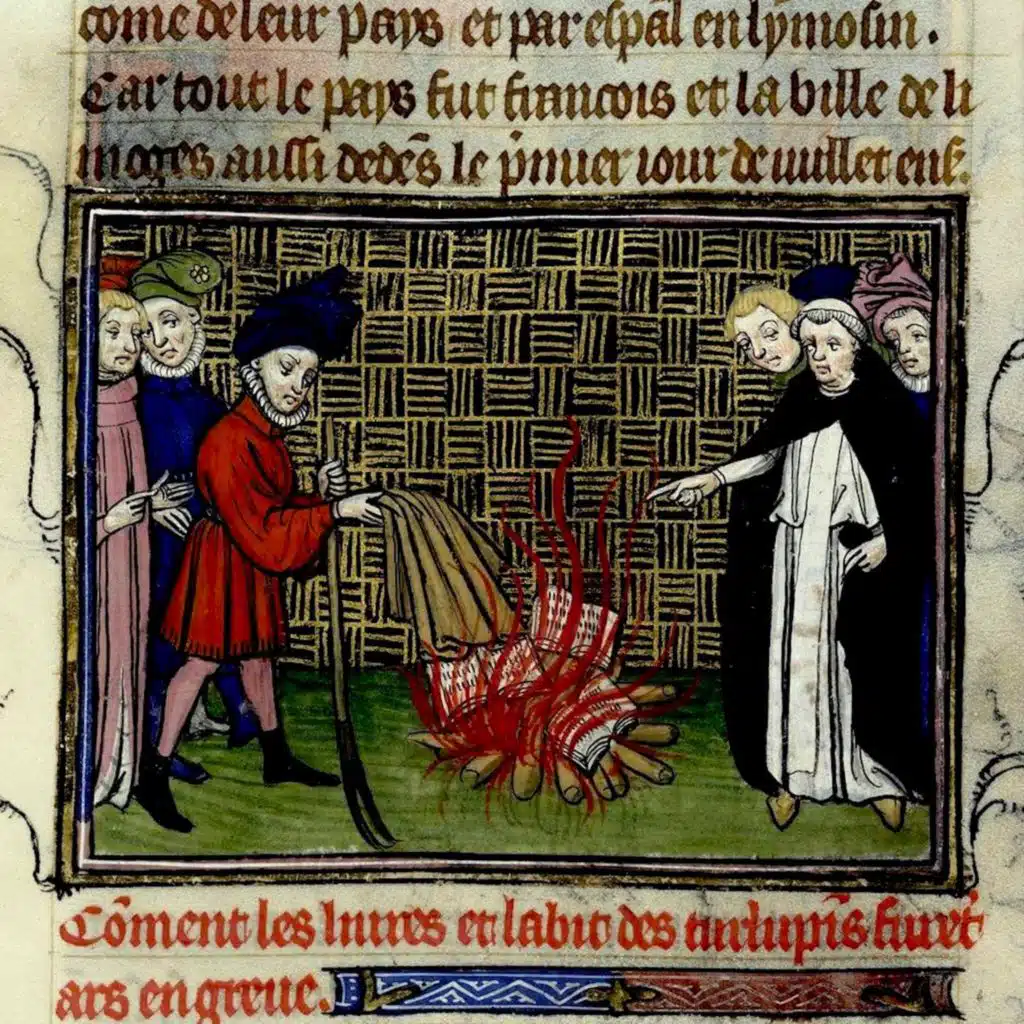 come de leur pays et par espãl en lymosin .
Car tout le pays fut francois et la ville de li
moges aussi dedẽs le p̃mier iour de iuillet enſ.
Cõment les liures et labit des turlupĩs furẽt
ars en greue .